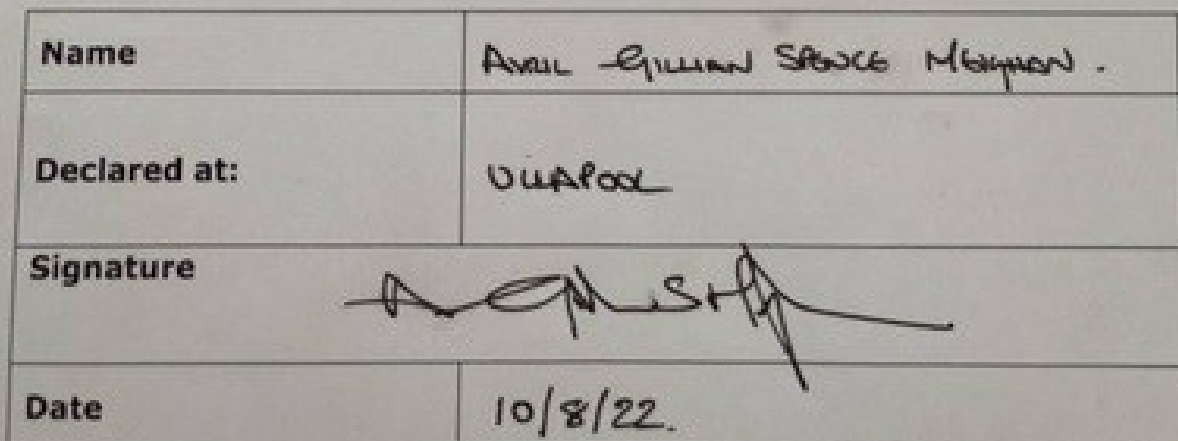 Name AVRIL GILLIAN SPENCE MEIGHAN.
Declared at: ULLAPOOL
Signature
Date 10/8/22.